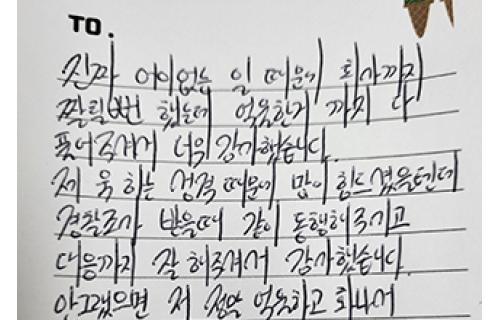 TO.
진짜 어이없는 일 때문에 회사까지
짤릴뻔 했는데 억울한거 까지 다
풀어주셔서 너무 감사했습니다.
제 욱하는 성격 때문에 많이 힘드셨을텐데
경찰조사 받을때 같이 동행해주시고
대응까지 잘 해주셔서 감사했습니다.
안그랬으면 저 정말 억울하고 화나서